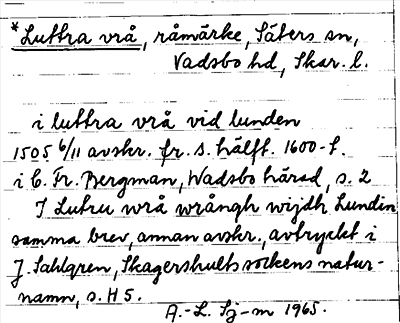 *Luttra vrå, råmärke, Säters sn,
Vadsbo hd, Skar. l.
i luttra vrå vid lunden
1505 6/11 avskr. fr. s. hälft. 1600-t.
i C. Fr. Bergman, Wadsbo härad, s. 2
J Lutru wrå wrångh wijdh Lundin
samma brev, annan avskr., avtryckt i
J. Sahlgren, Skagershults sockens natur-
namn, s. H 5.
A.-L. Sj-m 1965.